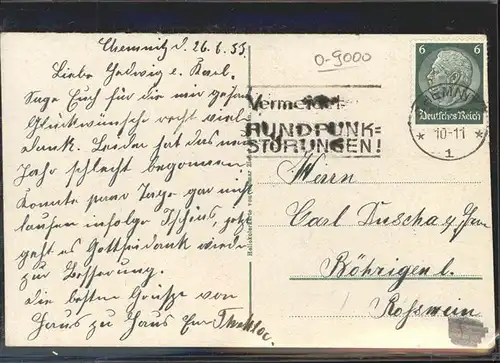 Chemnitz d. 26.6.35.
Liebe Hedwig u. Karl.
Sage Euch für die mir gesan
Glückwünsche recht viel
Dank. Leider hat das neu
Jahr schlecht begonnen
konnte paar Tage gar nicht
laufen infolge Ischias, jetzt
geht es Gottseidank wieder
zur Besserung.
Die besten Grüsse von
Haus zu Haus Eur
0-9000
Vermeidet
RUNDFUNK=
STÖRUNGEN!
6 6
Deutsches Reich
* 10-11 *
1
Herrn
Carl Duscha u. Frau
Böhrigen b.
Rosswein